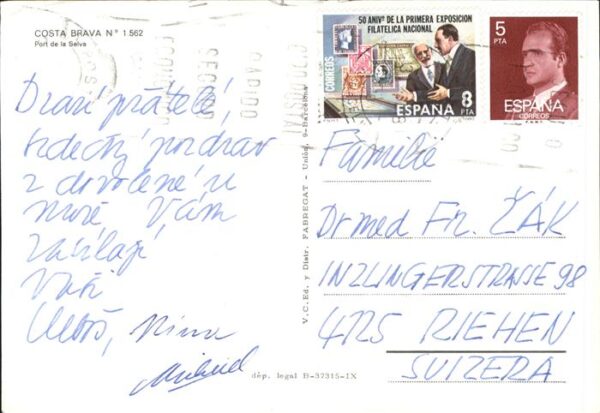 COSTA BRAVA Nº 1.562
Port de la Selva
Drazí přátelé,
srdečný pozdrav
z dovolené u
moře Vám
zasílají
Vaši
Nina
Michael
V.C.Ed. y Distr. FABREGAT - Unión, 9-Barcelona
dép. legal B-37315-IX
50 ANIVº DE LA PRIMERA EXPOSICION
FILATELICA NACIONAL
CORREOS
ESPAÑA 8
PTA
5
PTA
ESPAÑA
CORREOS
F.N.M.T.
RAPIDO
SEGURO
Familie
Dr med. Fr. ŽÁK
INZLINGERSTRASSE 98
4125 RIEHEN
SUIZERA